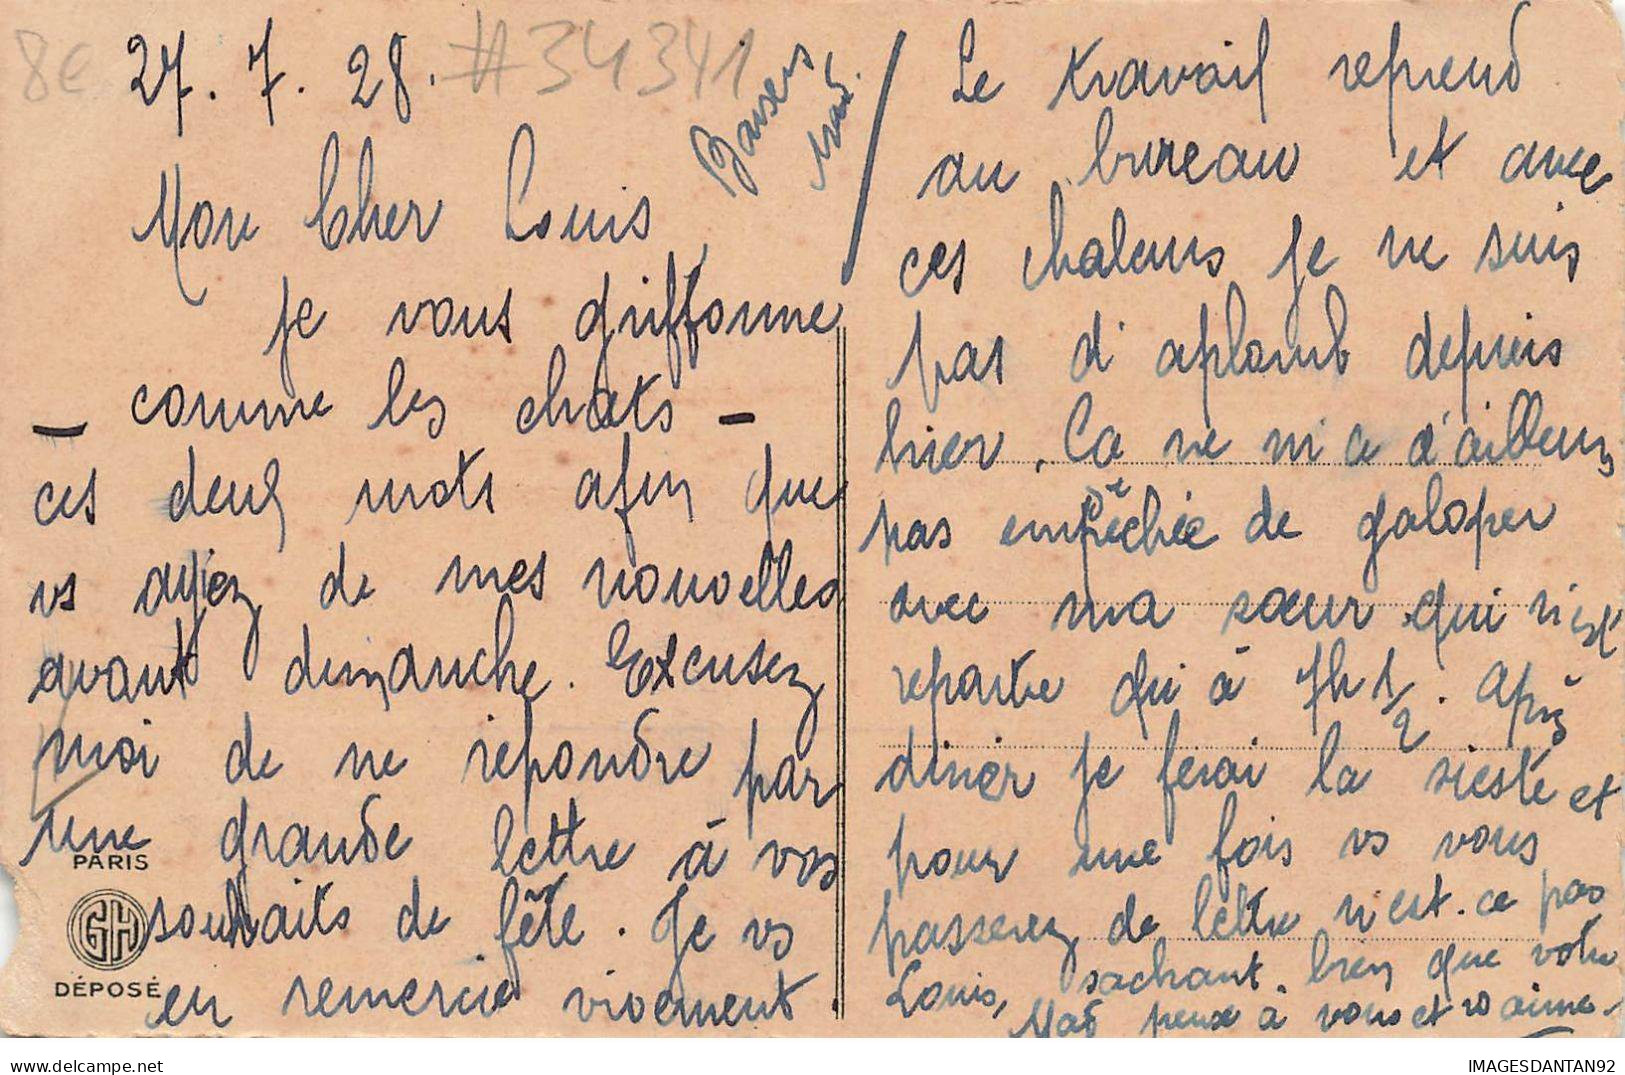 8e
27. 7. 28.
#34341
Baisers
Mad.
Mon Cher Louis,
Je vous griffonne
- comme les chats -
ces deux mots afin que
vs ayez de mes nouvelles
avant dimanche. Excusez
moi de ne répondre par
une grande lettre à vos
souhaits de fête. Je vs
en remercie vivement.
PARIS
GH
DÉPOSÉ
Le travail reprend
au bureau et avec
ces chaleurs je ne suis
pas d'aplomb depuis
hier. Ça ne m'a d'ailleurs
pas empêchée de galoper
avec ma sœur qui n'est
repartie qu'à 7h 1/2. Après
diner je ferai la sieste et
pour une fois vs vous
passerez de lettre n'est-ce pas
Louis, sachant bien que votre
Mad pense à vous et vs aime.
IMAGESDANTAN92